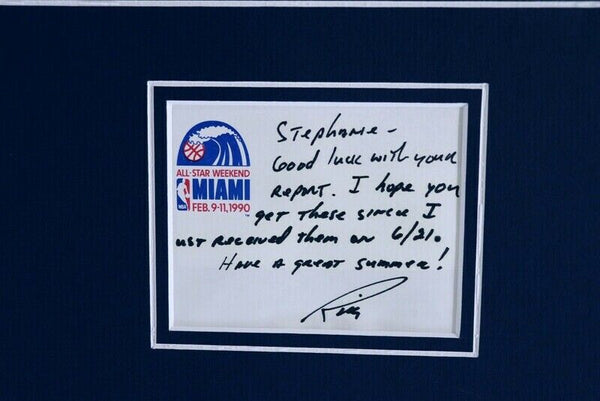 ALL-STAR WEEKEND
NBA
MIAMI
FEB. 9-11, 1990
TM
Stephanie -
Good luck with your
report. I hope you
get these since I
ust received them on 6/21.
Have a great summer!